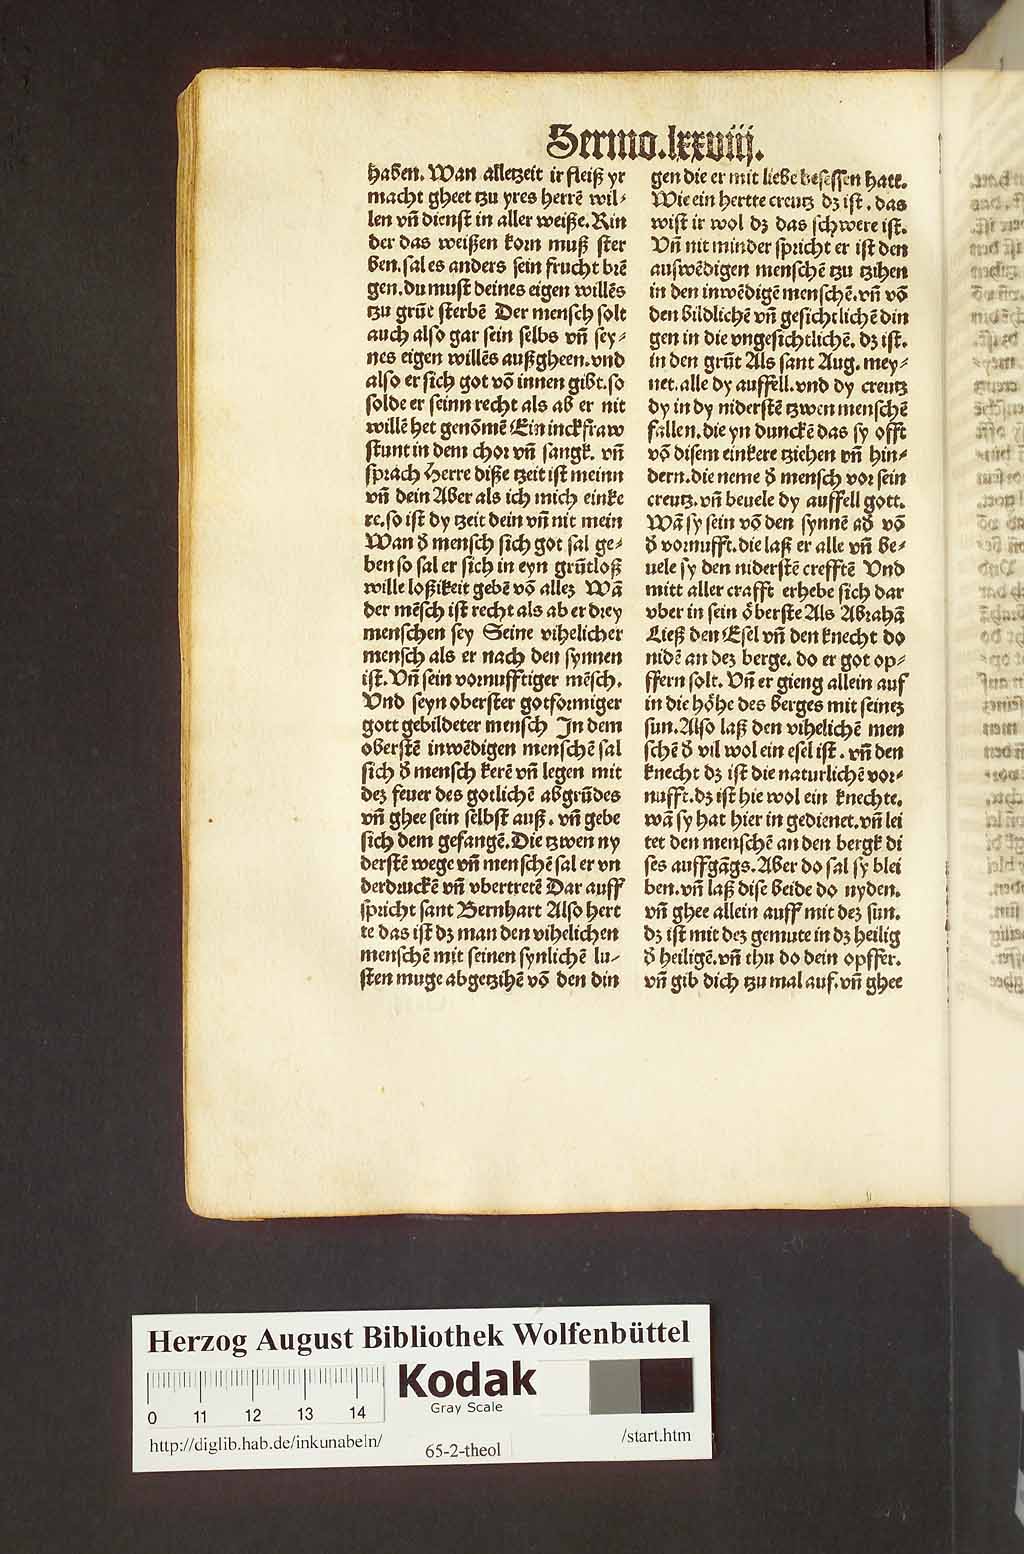 Sermo.lxxviij.
haben. Wan alletzeit ir fleiß yr
macht gheet tzu yres herrē wil⸗
len vñ dienst in aller weiße. Kin
der das weißen korn muß ster
ben. sal es anders sein frucht brē
gen. du must deines eigen willēs
tzu grūt sterbē Der mensch solt
auch also gar sein selbs vñ sey⸗
nes eigen willēs außgheen. vnd
also er sich got vō innen gibt. so
solde er seinn recht als ab er nit
willē het genōmē Ein inckfraw
stunt in dem chor vñ sangk. vñ
sprach Herre diße tzeit ist meinn
vñ dein Aber als ich mich einke
re. so ist dy tzeit dein vñ nit mein
Wan d̄ mensch sich got sal ge⸗
ben so sal er sich in eyn grūtloß
wille loßikeit gebē vō allez Wā
der mēsch ist recht als ab er drey
menschen sey Seine vihelicher
mensch als er nach den synnen
ist. Vñ sein vornufftiger mēsch.
Vnd seyn oberster gotformiger
gott gebildeter mensch In dem
oberstē inwēdigen menschē sal
sich d̄ mensch kerē vñ legen mit
dez feuer des gotlichē abgrūdes
vñ ghee sein selbst auß. vñ gebe
sich dem gefangē. Die tzwen ny
derstē wege vñ menschē sal er vn
derdruckē vñ vbertretē Dar auff
spricht sant Bernhart Also hert
te das ist dz man den vihelichen
menschē mit seinen synlichē lu⸗
sten muge abgetzihē vō den din
gen die er mit liebe besessen hatt.
Wie ein hertte creutz dz ist. das
wist ir wol dz das schwere ist.
Vñ nit minder spricht er ist den
auswēdigen menschē tzu tzihen
in den inwēdigē menschē. vñ vō
den bildlichē vñ gesichtlichē din
gen in die vngesichtlichē. dz ist.
in den grūt Als sant Aug. mey⸗
net. alle dy auffell. vnd dy creutz
dy in dy niderstē tzwen menschē
fallen. die yn dunckē das sy offt
vō disem einkere tziehen vñ hin⸗
dern. die neme d̄ mensch vor sein
creutz. vñ beuele dy auffell gott.
Wā sy sein vō den synnē ad̄ vō
d̄ vornufft. die laß er alle vñ be⸗
uele sy den niderstē crefftē Vnd
mitt aller crafft erhebe sich dar
vber in sein öberste Als Abrahā
Ließ den Esel vñ den knecht do
nidē an dez berge. do er got op⸗
ffern solt. Vñ er gieng allein auf
in die höhe des berges mit seinez
sun. Also laß den vihelichē men
schē d̄ vil wol ein esel ist. vñ den
knecht dz ist die naturlichē vor⸗
nufft. dz ist hie wol ein knechte.
wā sy hat hier in gedienet. vñ lei
tet den menschē an den bergk di
ses auffgāgs. Aber do sal sy blei
ben. vñ laß dise beide do nyden.
vñ ghee allein auff mit dez sun.
dz ist mit dez gemute in dz heilig
d̄ heiligē. vñ thu do dein opffer.
vñ gib dich tzu mal auf. vñ ghee
Herzog August Bibliothek Wolfenbüttel
Kodak
Gray Scale
0 11 12 13 14
http://diglib.hab.de/inkunabeln/
65-2-theol
/start.htm